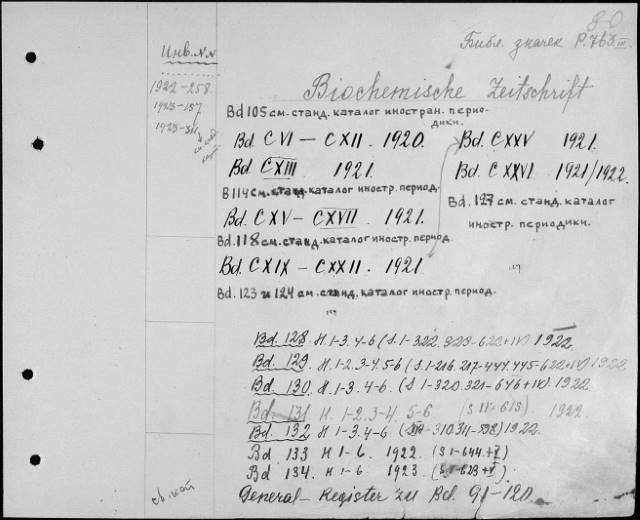 80
Библ. значек P.763 III
Инв. №№
1922-258
1923-157
1923-311
Biochemische Zeitschrift
Bd 105 см. станд. каталог иностран. перио-
дики.
Bd. CVI — CXII. 1920.
Bd. CXXV 1921.
Bd. CXIII 1921.
Bd. CXXVI 1921/1922.
B 114 см. станд. каталог иностр. период.
Bd. 127 см. станд. каталог
иностр. периодики.
Bd. CXV — CXVII. 1921.
Bd. 118 см. станд. каталог иностр. период.
Bd. CXIX — CXXII. 1921.
127
Bd. 123 и 124 см. станд. каталог иностр. период.
Bd. 128. H. 1-3. 4-6 (S. 1-322. 323-622+IV) 1922.
Bd. 129. H. 1-2. 3-4. 5-6 (S. 1-216. 217-444. 445-622+IV) 1922
Bd. 130. H. 1-3. 4-6. (S. 1-320. 321-646+IV). 1922.
Bd. 131 H. 1-2. 3-4 5-6 1922.
Bd. 132 H. 1-3. 4-6 1922.
Bd 133 H 1-6. 1922 (S 1-644+V)
Bd 134. H 1-6. 1923
General-Register zu Bd. 91-120.